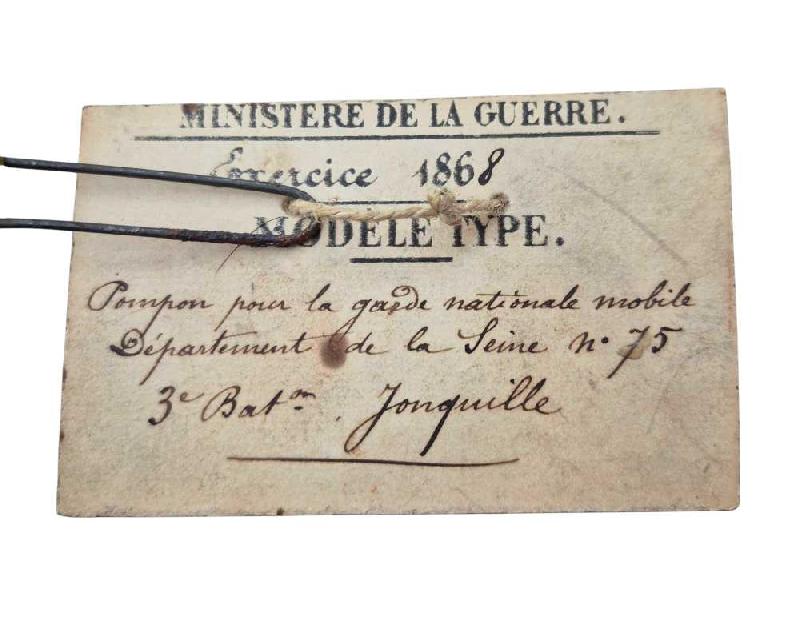 MINISTERE DE LA GUERRE.
Exercice 1868
MODÈLE TYPE.
Pompon pour la garde nationale mobile
Département de la Seine n° 75
3e Bat.on . Jonquille